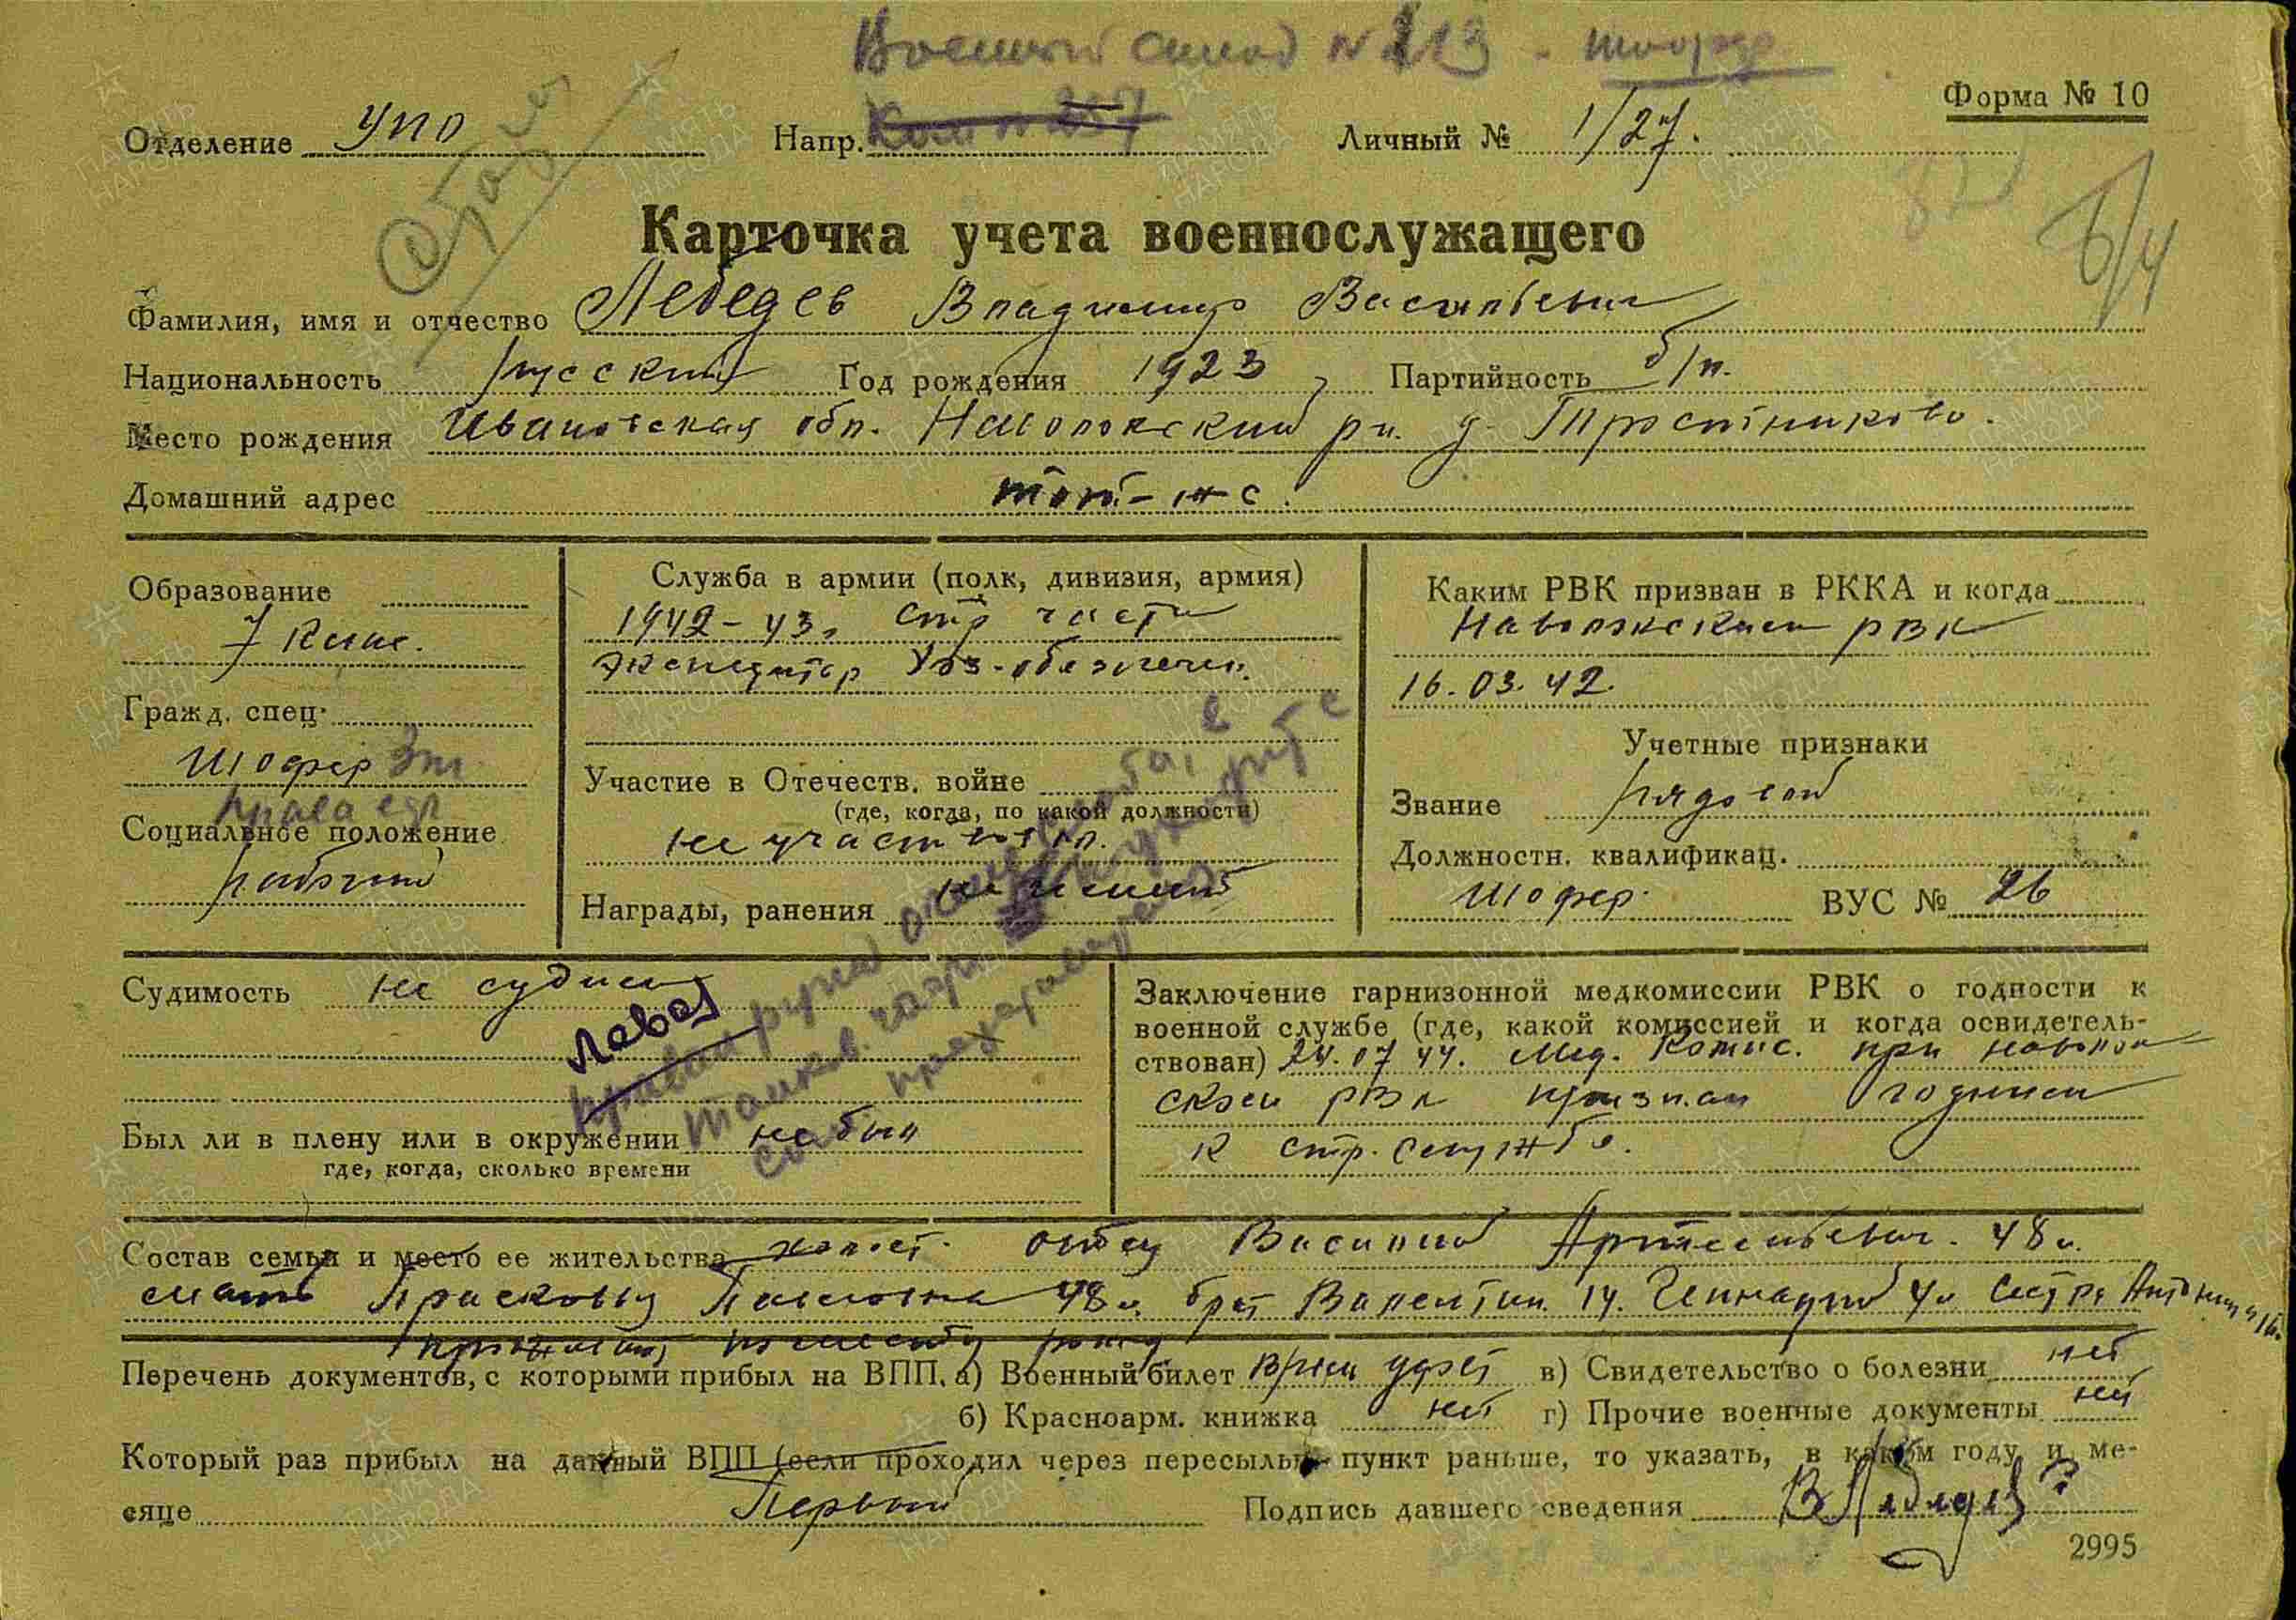 Военный склад № 213 - шофер
Форма № 10
Отделение УПО Напр. Личный № 1/27.
Б/4
Карточка учета военнослужащего
Фамилия, имя и отчество Лебедев Владимир Васильевич
Национальность русский Год рождения 1923 Партийность б/п.
Место рождения Ивановская обл. Наволокский рн. д. Тростниково.
Домашний адрес
Образование
7 клас.
Гражд. спец.
Шофер 3 кл.
права есть
Социальное положение
рабочий
Служба в армии (полк, дивизия, армия)
1942-43г стр части
экспедитор
Участие в Отечеств. войне
(где, когда, по какой должности)
не участвовал.
Награды, ранения не имеет
Каким РВК призван в РККА и когда
Наволокским РВК
16.03.42.
Учетные признаки
Звание рядовой
Должностн. квалификац.
Шофер. ВУС № 26
Судимость не судим
левая
правая
Был ли в плену или в окружении не был
где, когда, сколько времени
Заключение гарнизонной медкомиссии РВК о годности к
военной службе (где, какой комиссией и когда освидетель-
ствован) 24.07.44. Мед. комис. при наволок
ском РВК признан годным
к стр. службе.
Состав семьи и место ее жительства холост. отец Василий Артемьевич. 48 л.
мать Прасковья Павловна 48 л. брат Валентин 14. Геннадий 4 л сестра Антонина
прожив. по месту рожд
Перечень документов, с которыми прибыл на ВПП. а) Военный билет врем удост в) Свидетельство о болезни нет
б) Красноарм. книжка нет г) Прочие военные документы нет
Который раз прибыл на данный ВПП (если проходил через пересыльн. пункт раньше, то указать, в каком году и ме-
сяце Первый Подпись давшего сведения В Лебедев
2995
ПАМЯТЬ НАРОДА